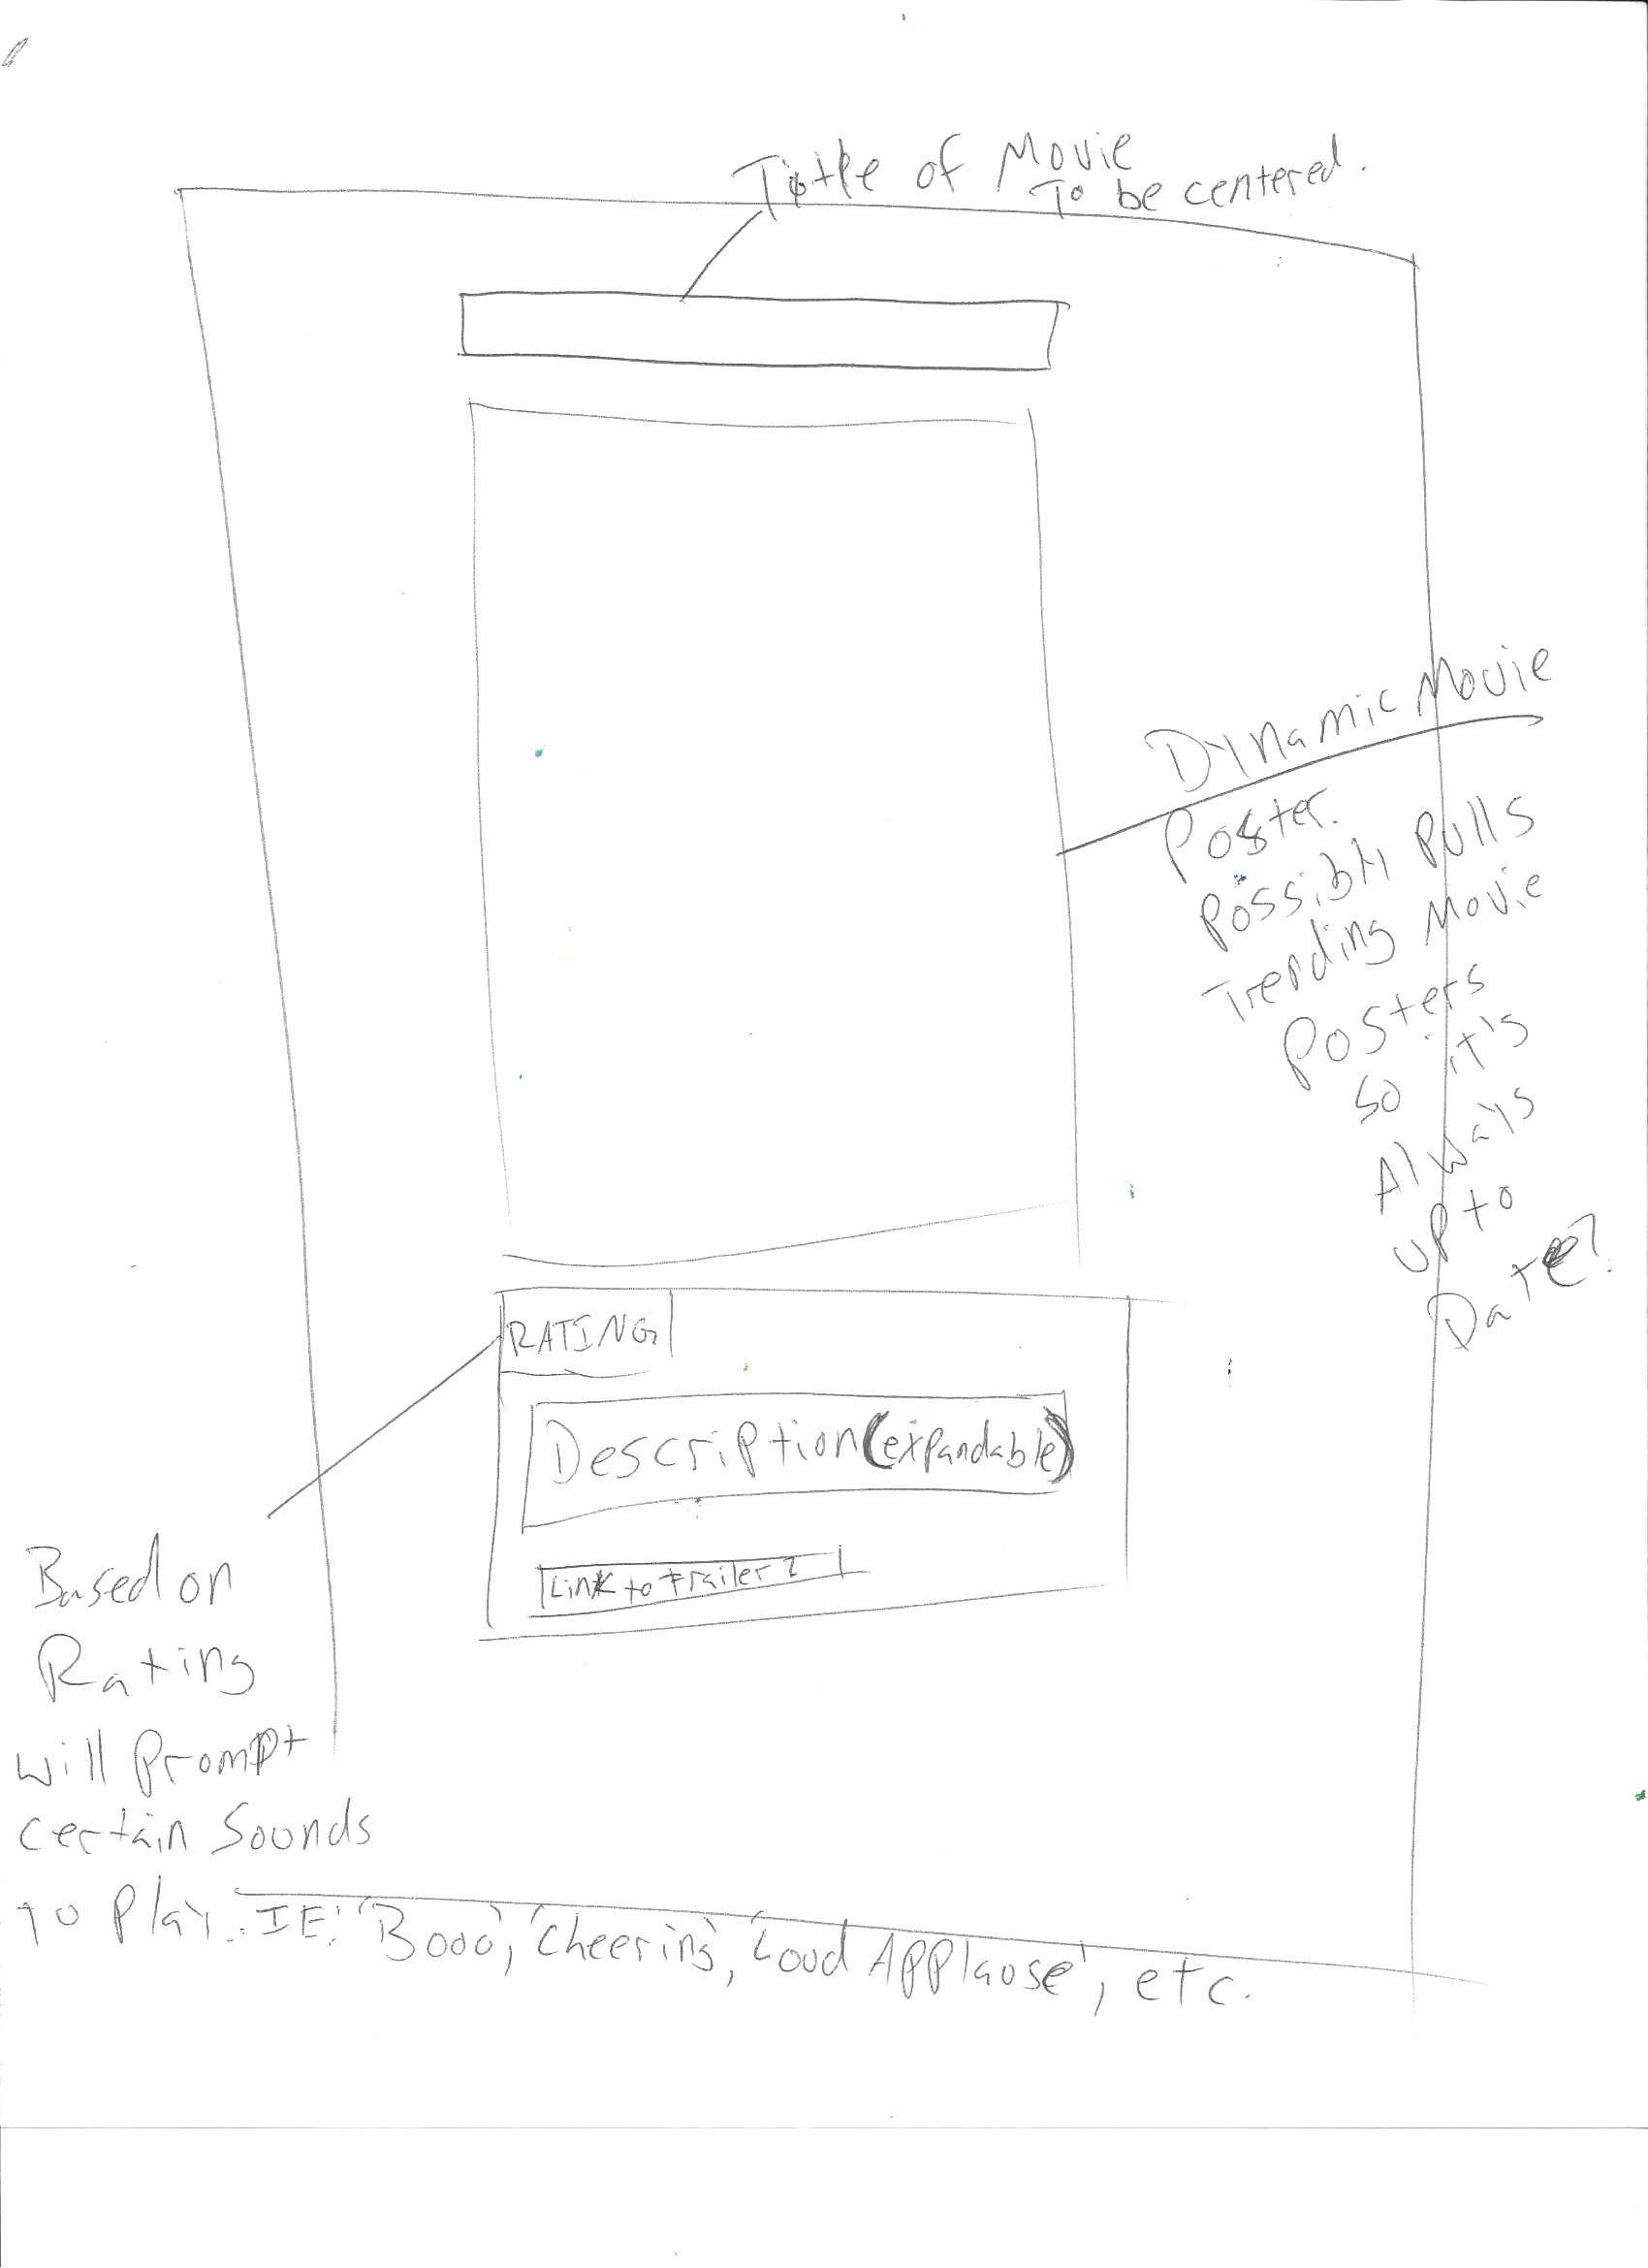 Title of Movie
To be centered.
Dynamic Movie
Poster.
Possibly Pulls
Trending Movie
Posters
so it's
Always
up to
Date?
RATING
Description (expandable)
Link to trailer?
Based on
Rating
will Prompt
certain Sounds
to Play.. IE: 'Booo', 'Cheering', 'Loud Applause', etc.